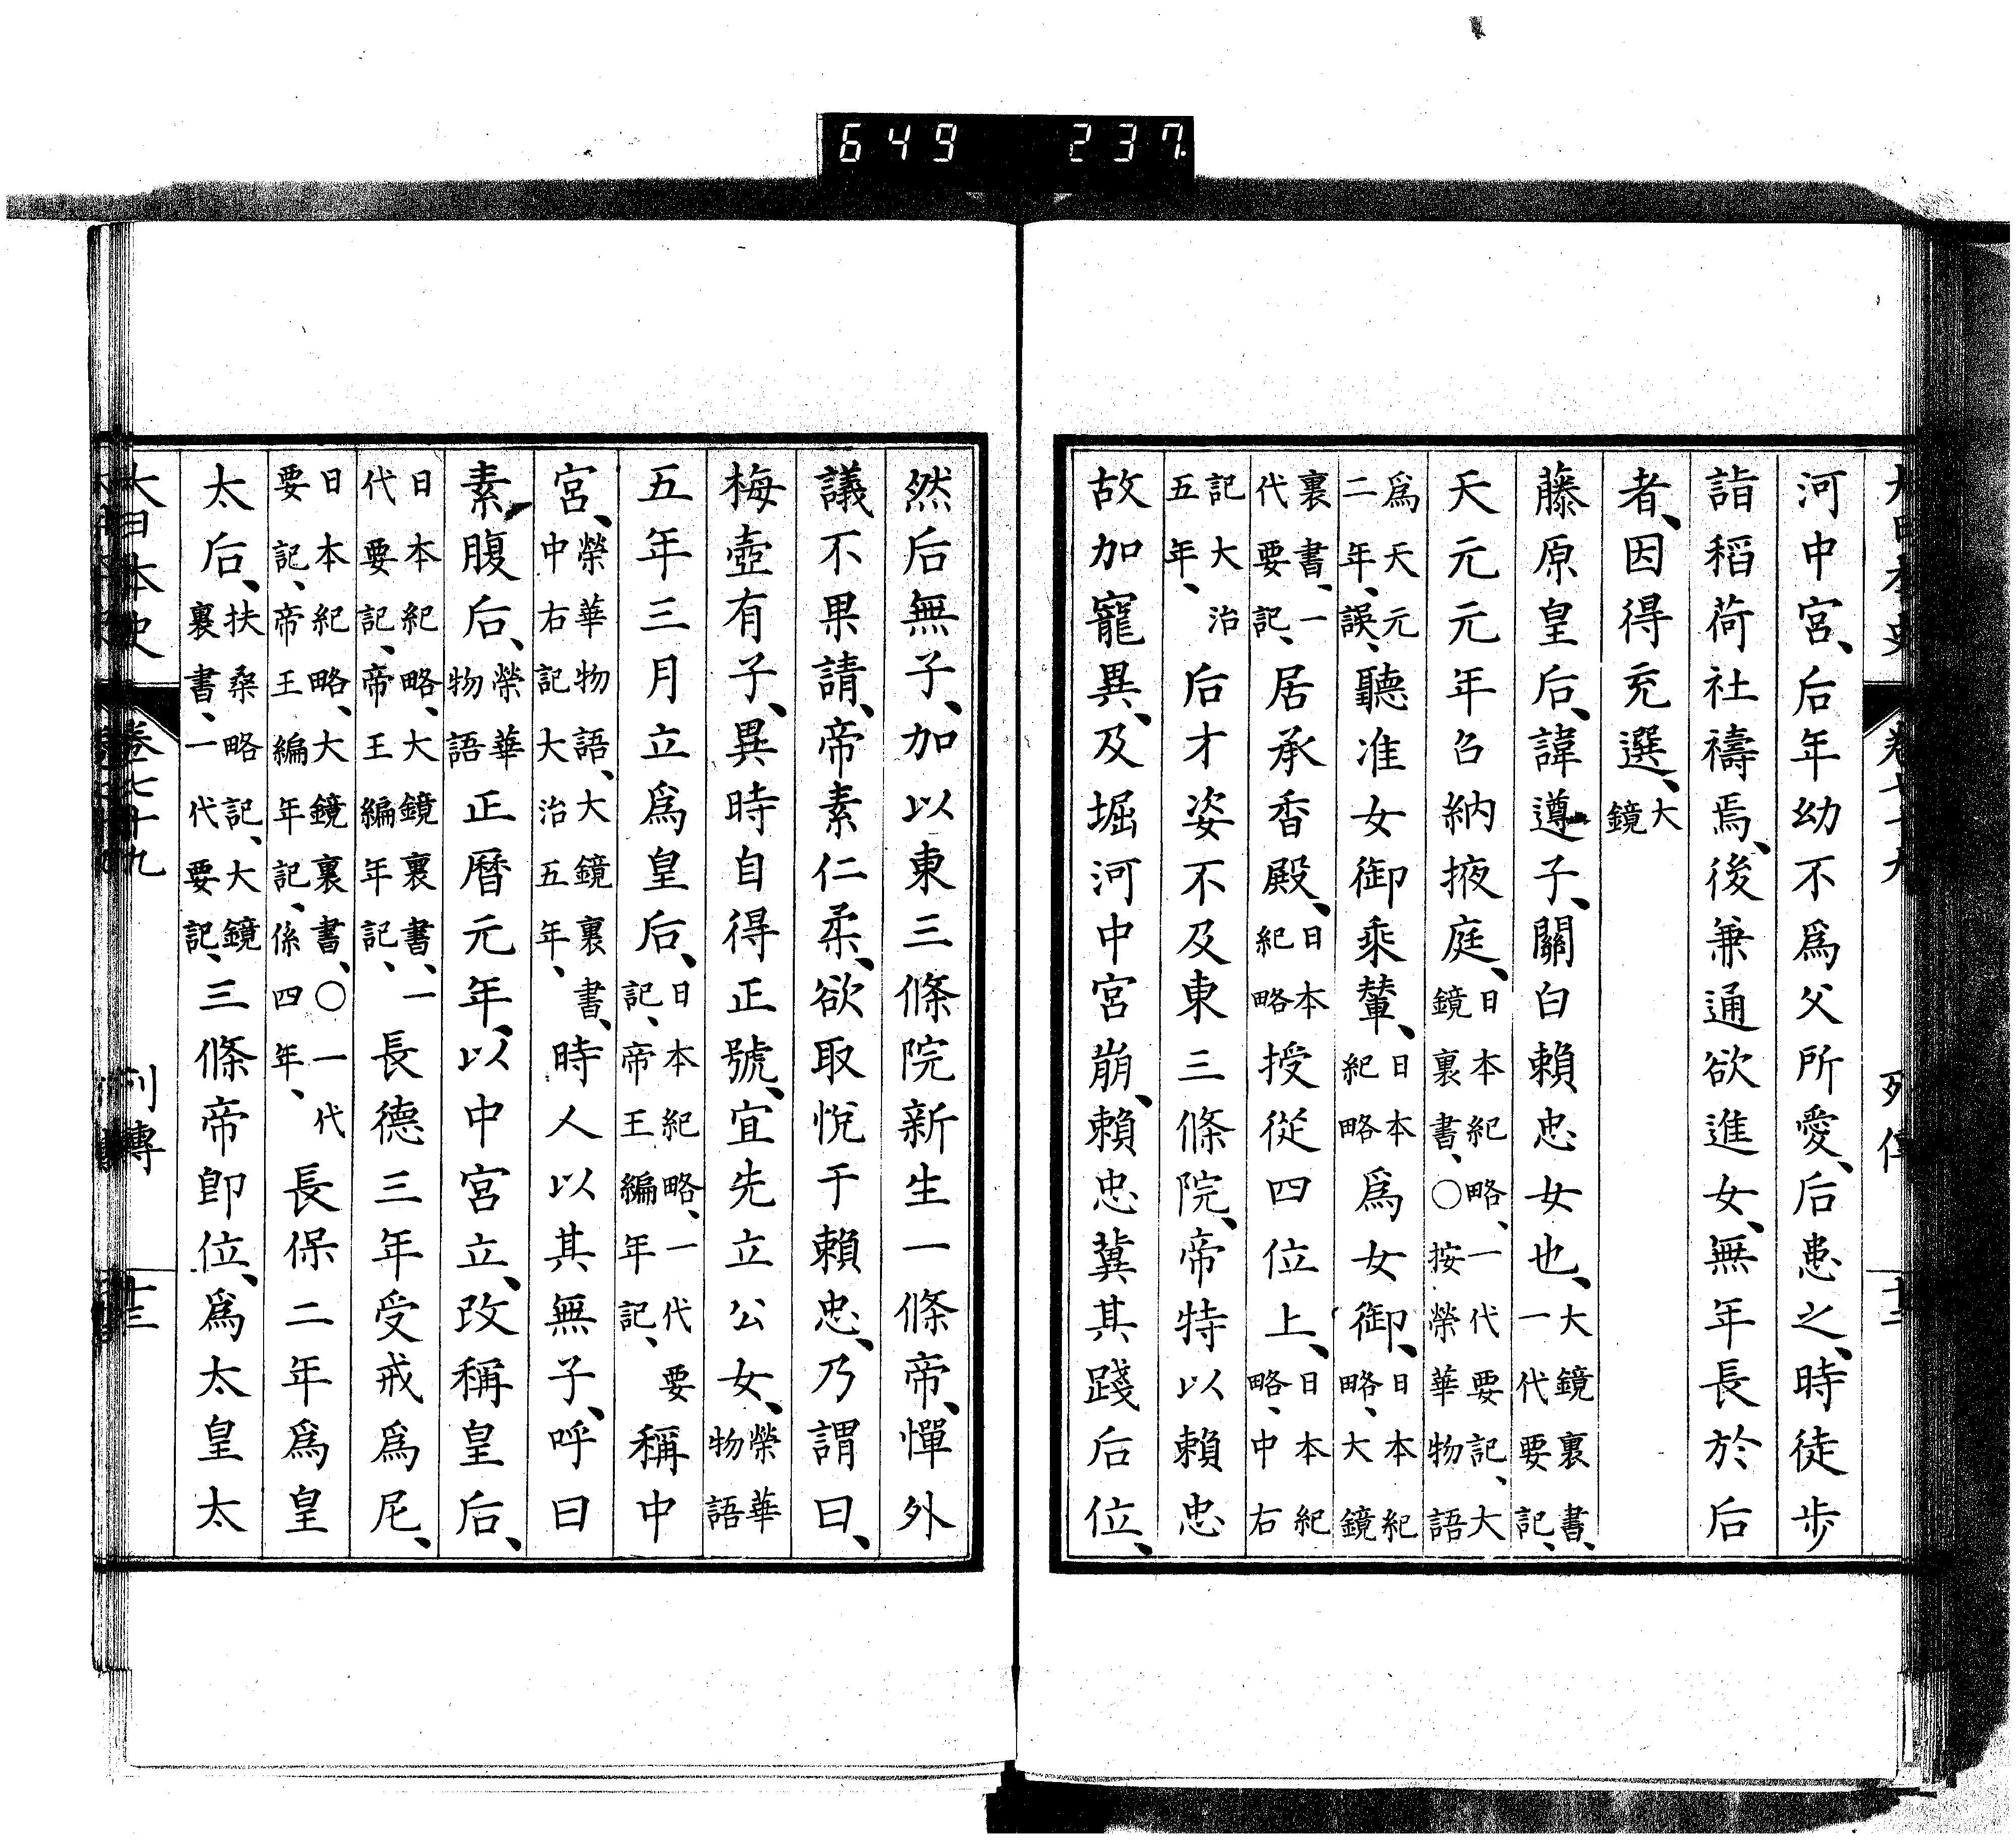 649 237.
大日本史 卷七十九 列傳 十二
河中宮、后年幼不爲父所愛、后患之、時徒步
詣稻荷社禱焉、後兼通欲進女、無年長於后
者、因得充選、大鏡
藤原皇后、諱遵子、關白賴忠女也、大鏡裏書、一代要記、
天元元年召納掖庭、日本紀略、一代要記、大鏡裏書、○按榮華物語
爲天元二年、誤、聽准女御乘輦、日本紀略爲女御、日本紀略、大鏡
裏書、一代要記、居承香殿、日本紀略授從四位上、日本紀略、中右
記大治五年、后才姿不及東三條院、帝特以賴忠
故加寵異、及堀河中宮崩、賴忠冀其踐后位、
然后無子、加以東三條院新生一條帝、憚外
議不果請、帝素仁柔、欲取悅于賴忠、乃謂曰、
梅壺有子、異時自得正號、宜先立公女、榮華物語
五年三月立爲皇后、日本紀略、一代要記、帝王編年記、稱中
宮、榮華物語、大鏡裏書、中右記大治五年、時人以其無子、呼曰
素腹后、榮華物語正曆元年、以中宮立、改稱皇后、
日本紀略、大鏡裏書、一代要記、帝王編年記、長德三年受戒爲尼、
日本紀略、大鏡裏書、○一代要記、帝王編年記、係四年、長保二年爲皇
太后、扶桑略記、大鏡裏書、一代要記、三條帝卽位、爲太皇太
大日本史 卷七十九 列傳 十三